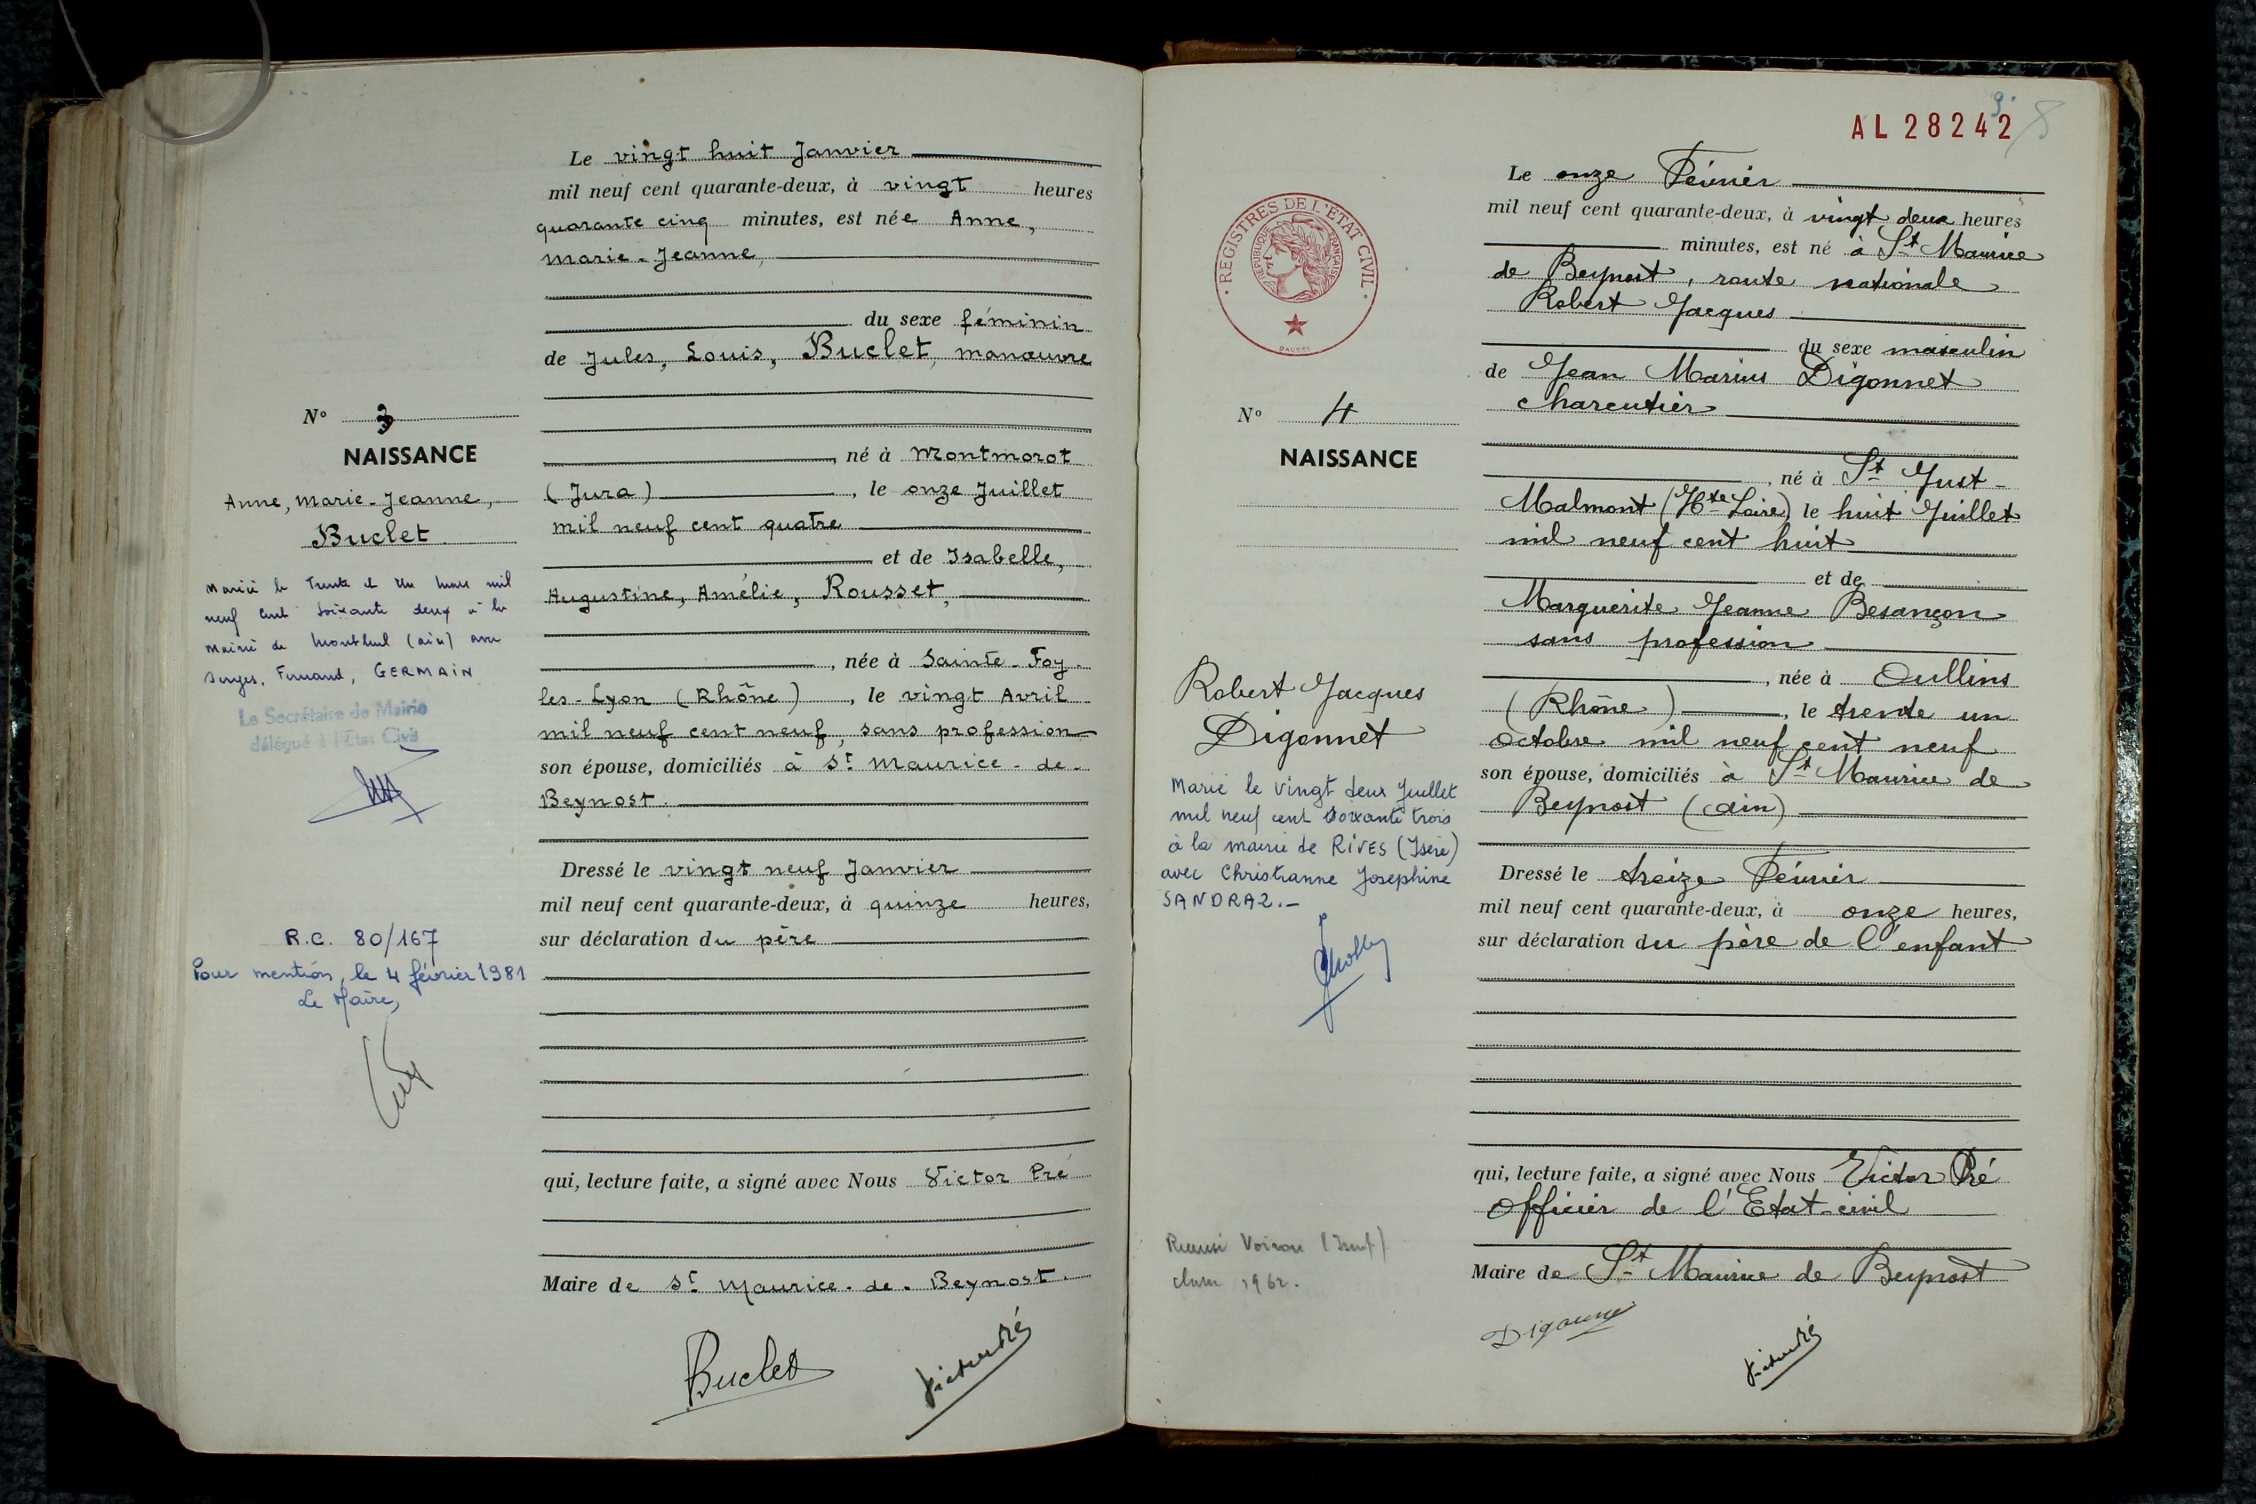 Le vingt huit Janvier
mil neuf cent quarante-deux, à vingt heures
quarante cinq minutes, est née Anne,
Marie-Jeanne,
du sexe féminin
de Jules, Louis, Buclet, manœuvre
né à Montmorot
(Jura), le onze Juillet
mil neuf cent quatre
et de Isabelle,
Augustine, Amélie, Rousset,
née à Sainte-Foy-
les-Lyon (Rhône), le vingt Avril
mil neuf cent neuf, sans profession
son épouse, domiciliés à St Maurice-de-
Beynost.
Dressé le vingt neuf Janvier
mil neuf cent quarante-deux, à quinze heures,
sur déclaration du père
qui, lecture faite, a signé avec Nous Victor Pré
Maire de St Maurice-de-Beynost.
Buclet
Victor Pré
No 3
NAISSANCE
Anne, Marie-Jeanne,
Buclet
Mariée le trente et un mars mil
neuf cent soixante deux à la
mairie de Montluel (ain) avec
Serges, Fernand, GERMAIN
Le Secrétaire de Mairie
délégué à l'Etat Civil
R.C. 80/167
Pour mention, le 4 février 1981
Le Maire,
AL 28242
Le onze Février
mil neuf cent quarante-deux, à vingt deux heures
minutes, est né à St Maurice
de Beynost, route nationale
Robert Jacques
du sexe masculin
de Jean Marius Digonnet
charcutier
né à St Just-
Malmont (Hte Loire) le huit Juillet
mil neuf cent huit
et de
Marguerite Jeanne Besançon
sans profession
née à Oullins
(Rhône), le trente un
Octobre mil neuf cent neuf
son épouse, domiciliés à St Maurice de
Beynost (ain)
Dressé le treize Février
mil neuf cent quarante-deux, à onze heures,
sur déclaration du père de l'enfant
qui, lecture faite, a signé avec Nous Victor Pré
Officier de l'Etat-civil
Maire de St Maurice de Beynost
Digonnet
Victor Pré
REGISTRES DE L'ETAT CIVIL
REPUBLIQUE FRANÇAISE
No 4
NAISSANCE
Robert Jacques
Digonnet
Marié le vingt deux Juillet
mil neuf cent soixante trois
à la mairie de RIVES (Isère)
avec Christianne Josephine
SANDRAZ.-
Voiron
1962.